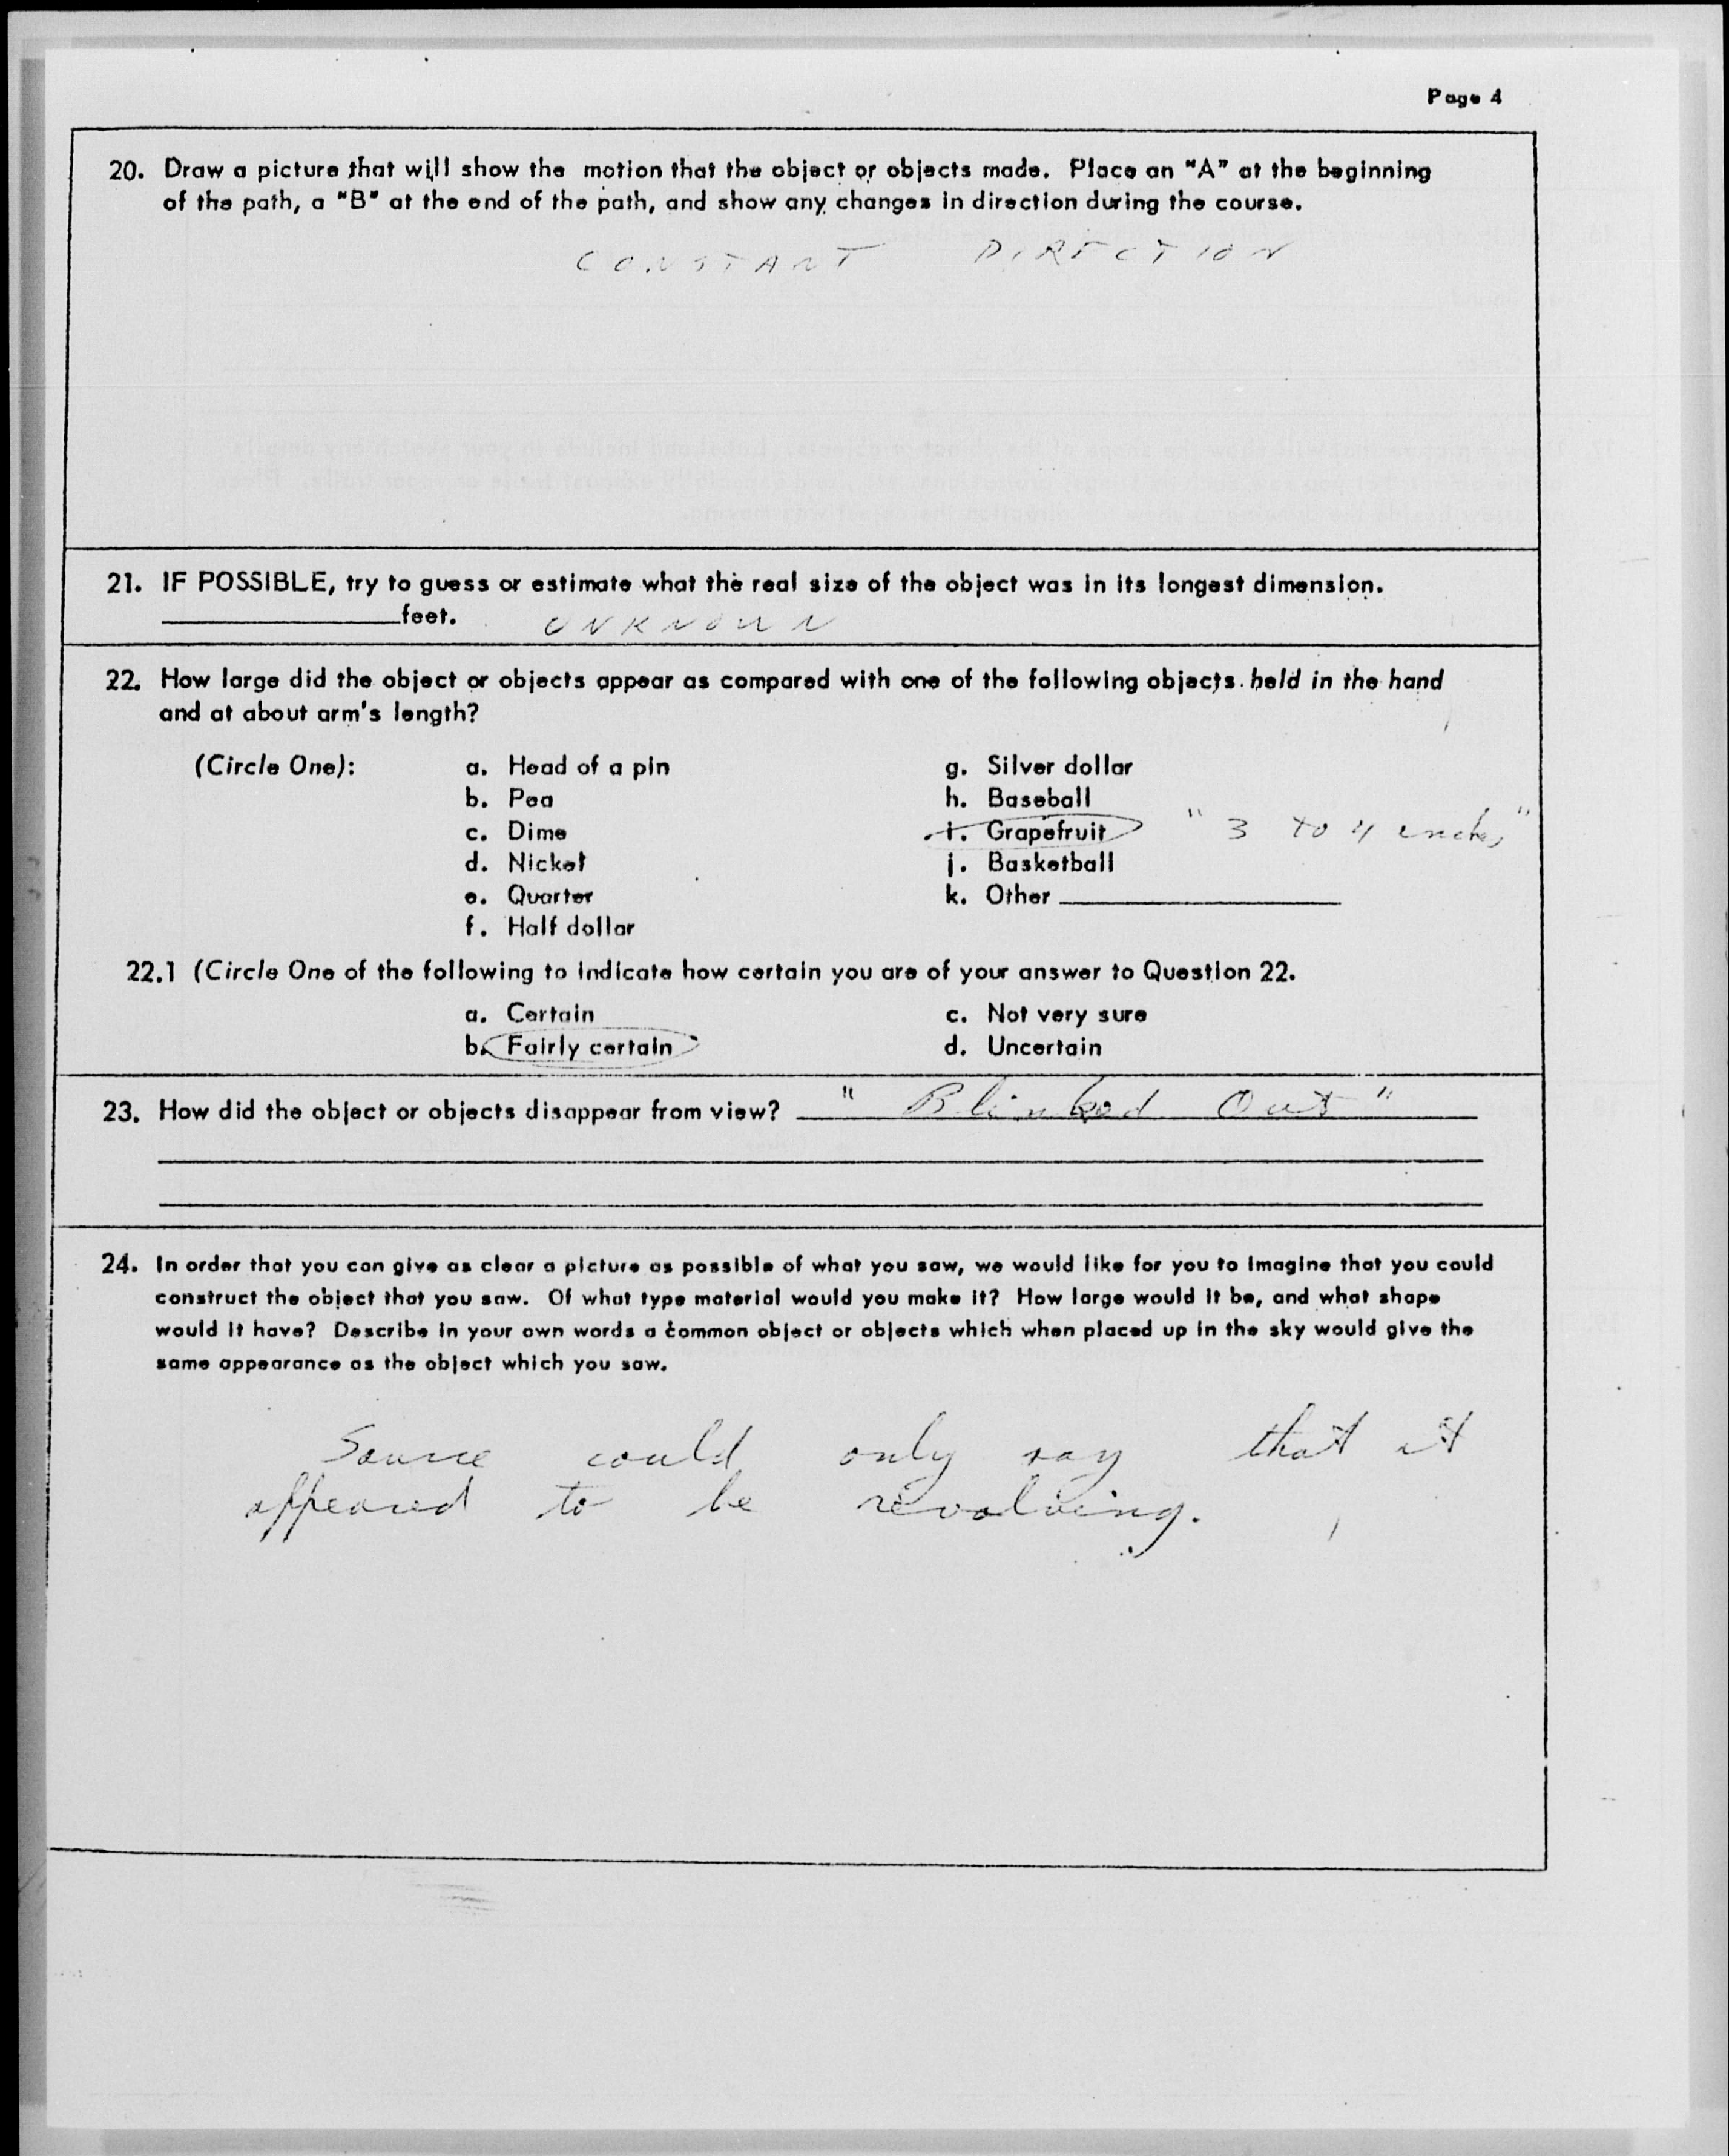 Page 4
20. Draw a picture that will show the motion that the object or objects made. Place an "A" at the beginning
of the path, a "B" at the end of the path, and show any changes in direction during the course.
CONSTANT DIRECTION
21. IF POSSIBLE, try to guess or estimate what the real size of the object was in its longest dimension.
____________feet. UNKNOWN
22. How large did the object or objects appear as compared with one of the following objects held in the hand
and at about arm's length?
(Circle One): a. Head of a pin g. Silver dollar
b. Pea h. Baseball
c. Dime i. Grapefruit "3 to 4 inches"
d. Nickel j. Basketball
e. Quarter k. Other ____________
f. Half dollar
22.1 (Circle One of the following to indicate how certain you are of your answer to Question 22.
a. Certain c. Not very sure
b. Fairly certain d. Uncertain
23. How did the object or objects disappear from view? "Blinked Out"
24. In order that you can give as clear a picture as possible of what you saw, we would like for you to imagine that you could
construct the object that you saw. Of what type material would you make it? How large would it be, and what shape
would it have? Describe in your own words a common object or objects which when placed up in the sky would give the
same appearance as the object which you saw.
Source could only say that it
appeared to be revolving.